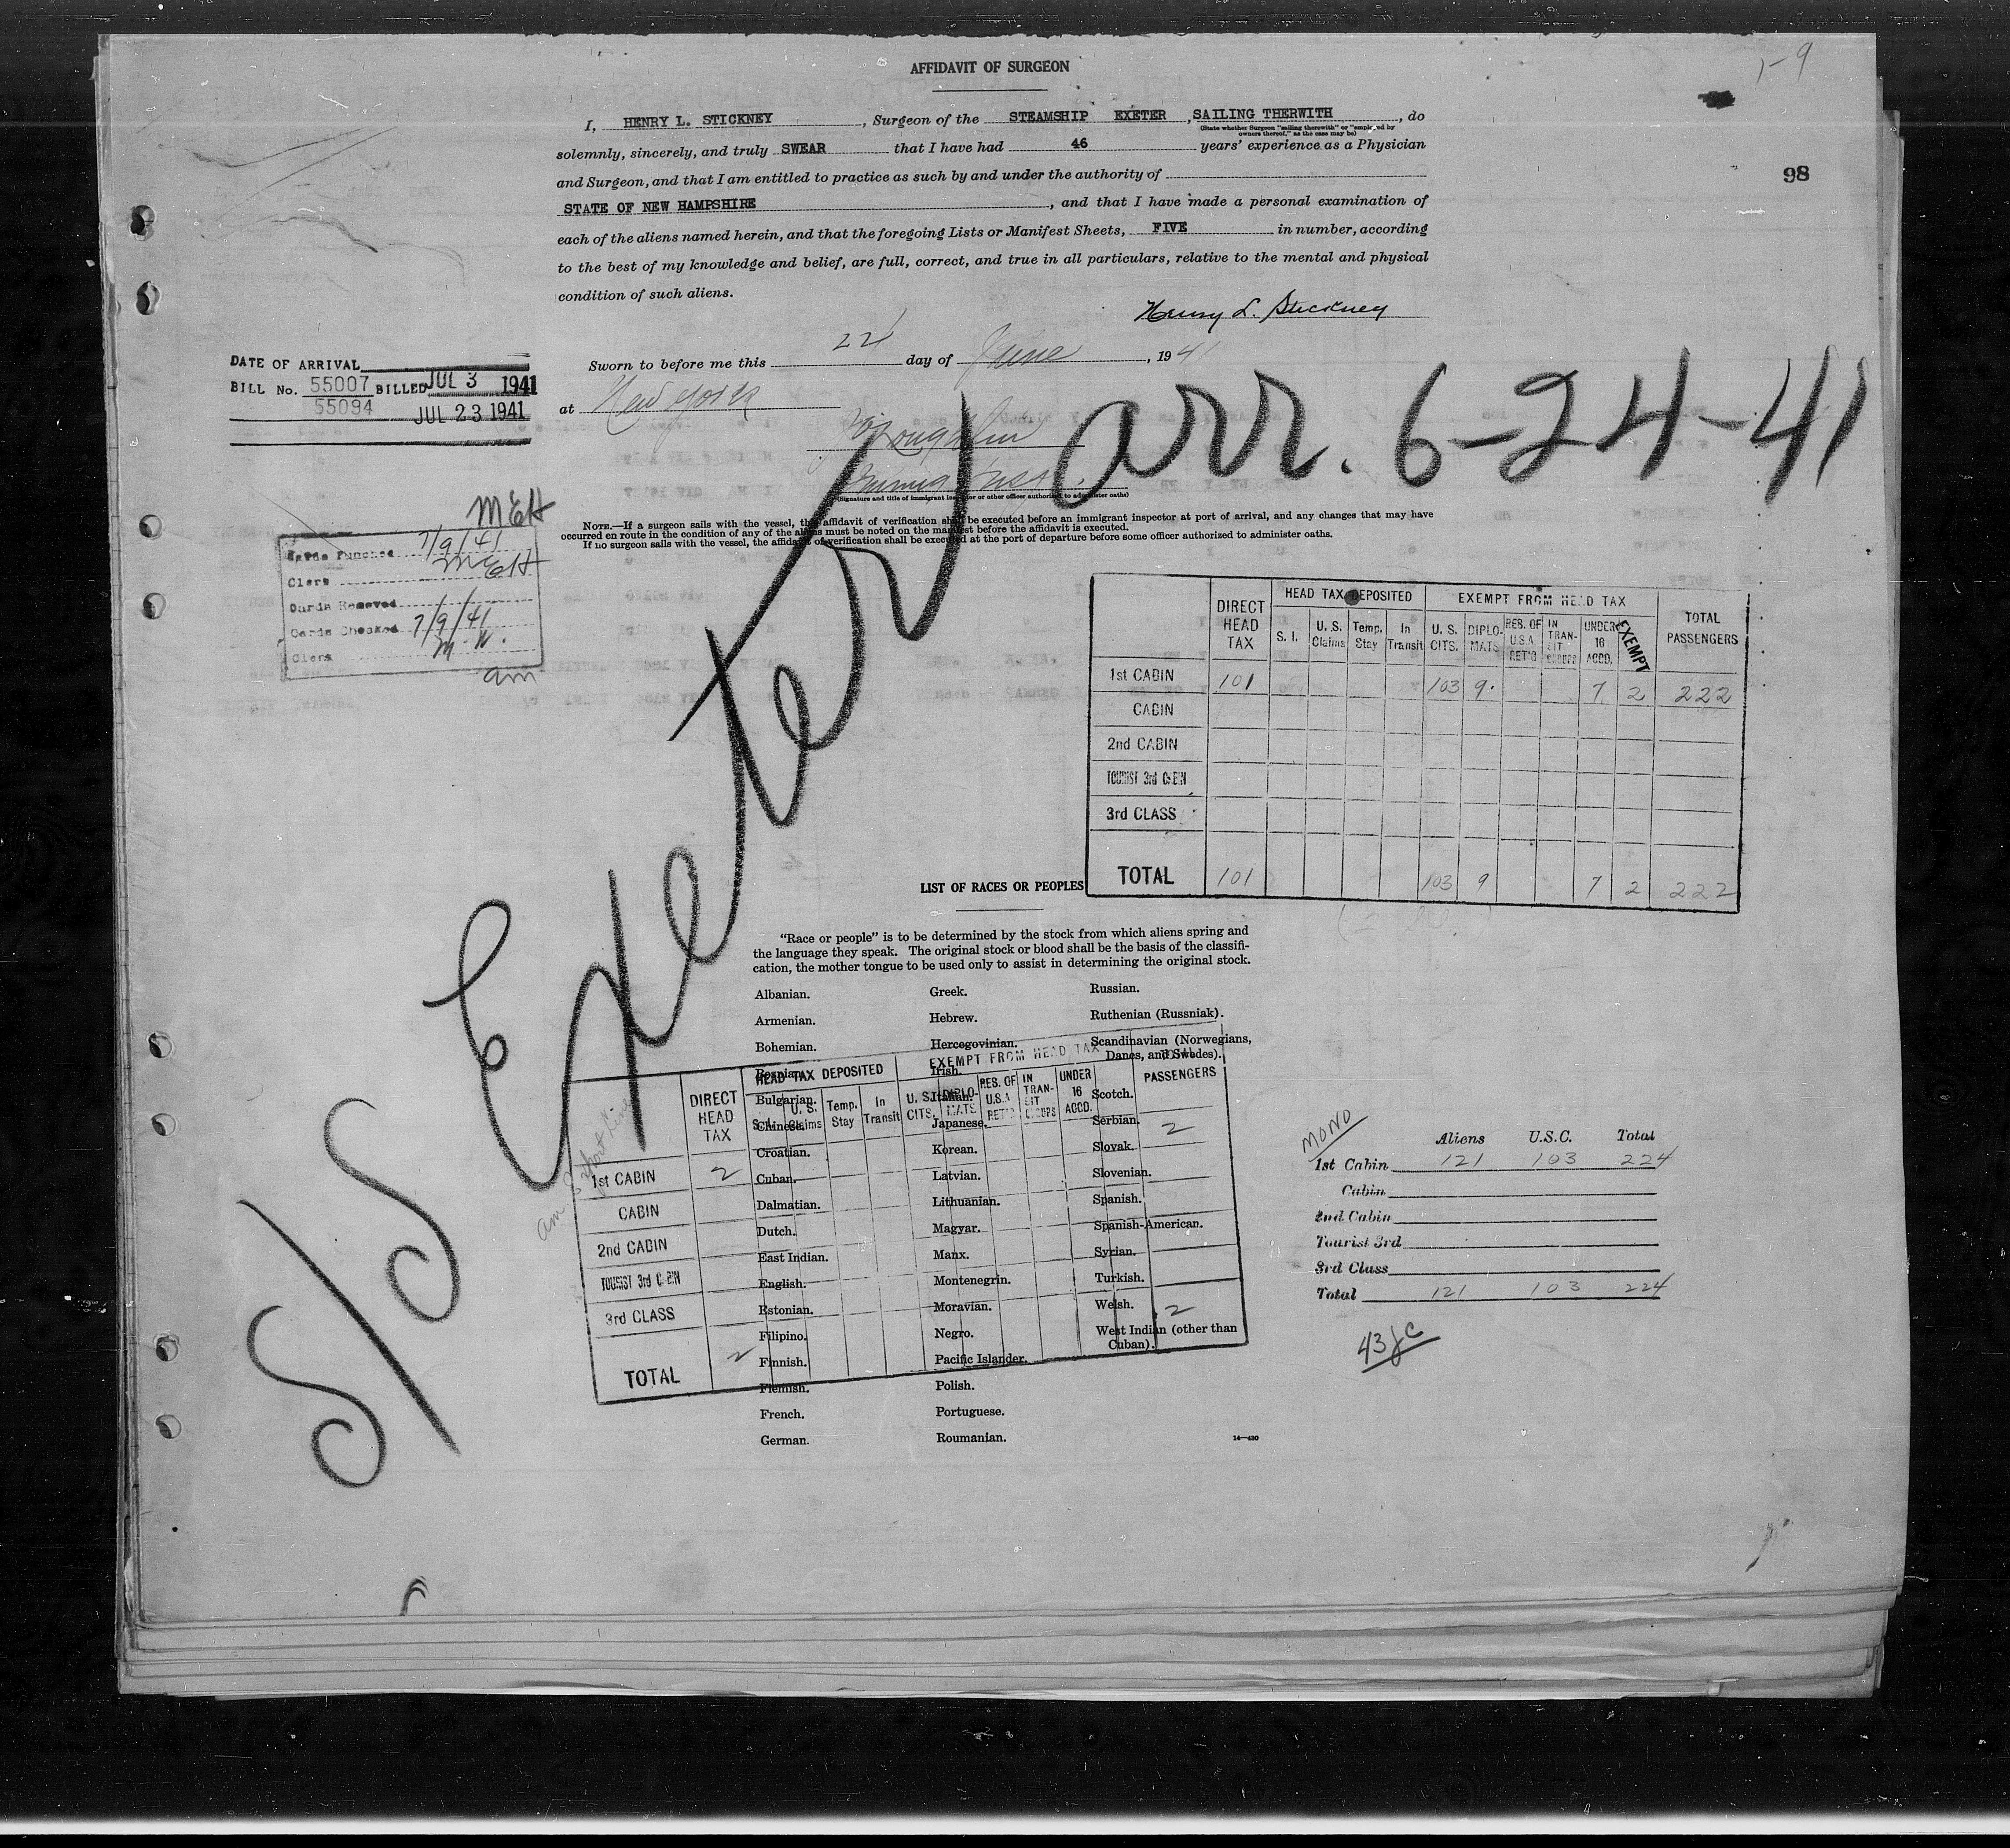 AFFIDAVIT OF SURGEON
1-9
98
I, HENRY L. STICKNEY, Surgeon of the STEAMSHIP EXETER, SAILING THERWITH, do
(State whether Surgeon "sailing therewith" or "employed by owners thereof," as the case may be)
solemnly, sincerely, and truly SWEAR that I have had 46 years' experience as a Physician
and Surgeon, and that I am entitled to practice as such by and under the authority of
STATE OF NEW HAMPSHIRE, and that I have made a personal examination of
each of the aliens named herein, and that the foregoing Lists or Manifest Sheets, FIVE in number, according
to the best of my knowledge and belief, are full, correct, and true in all particulars, relative to the mental and physical
condition of such aliens.
Henry L. Stickney
Sworn to before me this 22 day of June, 1941
at New York
Immig Insp.
(Signature and title of immigrant inspector or other officer authorized to administer oaths)
DATE OF ARRIVAL
BILL No. 55007 BILLED JUL 3 1941
55094 JUL 23 1941
S/S Exeter arr. 6-24-41
NOTE.—If a surgeon sails with the vessel, this affidavit of verification shall be executed before an immigrant inspector at port of arrival, and any changes that may have
occurred en route in the condition of any of the aliens must be noted on the manifest before the affidavit is executed.
If no surgeon sails with the vessel, the affidavit of verification shall be executed at the port of departure before some officer authorized to administer oaths.
MEH
Cards Punched 7/9/41
Clerk MEH
Cards Removed
Cards Checked 7/9/41
Clerk M.W.
am
DIRECT HEAD TAX
HEAD TAX DEPOSITED
S. I. U. S. Claims Temp. Stay In Transit
EXEMPT FROM HEAD TAX
U. S. CITS. DIPLOMATS RES. OF U.S.A. RET'G IN TRANSIT UNDER 16 ACCD. EXEMPT
TOTAL PASSENGERS
1st CABIN 101 103 9 7 2 222
CABIN
2nd CABIN
TOURIST 3rd CABIN
3rd CLASS
TOTAL 101 103 9 7 2 222
LIST OF RACES OR PEOPLES
"Race or people" is to be determined by the stock from which aliens spring and
the language they speak. The original stock or blood shall be the basis of the classifi-
cation, the mother tongue to be used only to assist in determining the original stock.
Albanian.
Armenian.
Bohemian.
Bosnian.
Bulgarian.
Chinese.
Croatian.
Cuban.
Dalmatian.
Dutch.
East Indian.
English.
Estonian.
Filipino.
Finnish.
Flemish.
French.
German.
Greek.
Hebrew.
Hercegovinian.
Irish.
Italian.
Japanese.
Korean.
Latvian.
Lithuanian.
Magyar.
Manx.
Montenegrin.
Moravian.
Negro.
Pacific Islander.
Polish.
Portuguese.
Roumanian.
Russian.
Ruthenian (Russniak).
Scandinavian (Norwegians,
Danes, and Swedes).
Scotch.
Serbian.
Slovak.
Slovenian.
Spanish.
Spanish-American.
Syrian.
Turkish.
Welsh.
West Indian (other than
Cuban).
14—430
DIRECT HEAD TAX
HEAD TAX DEPOSITED
S. I. U. S. Claims Temp. Stay In Transit
EXEMPT FROM HEAD TAX
U. S. CITS. DIPLOMATS RES. OF U.S.A RET'G IN TRANSIT UNDER 16 ACCD.
TOTAL PASSENGERS
1st CABIN 2 2
CABIN
2nd CABIN
TOURIST 3rd CABIN
3rd CLASS
TOTAL 2 2
MONO
Aliens U.S.C. Total
1st Cabin 121 103 224
Cabin
2nd Cabin
Tourist 3rd
3rd Class
Total 121 103 224